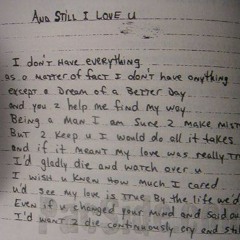 And Still I Love U
I don't have everything
as a matter of fact I don't have anything
except a dream of a better day
and you 2 help me find my way
Being a man I am sure 2 make mist
But 2 keep u I would do all it takes
and if it meant my love was really tr
I'd gladly die and watch over u
I wish u knew how much I cared
u'd see my love is true By the life we'd
Even if u changed your mind and said ou
I'd want 2 die continuously cry and still